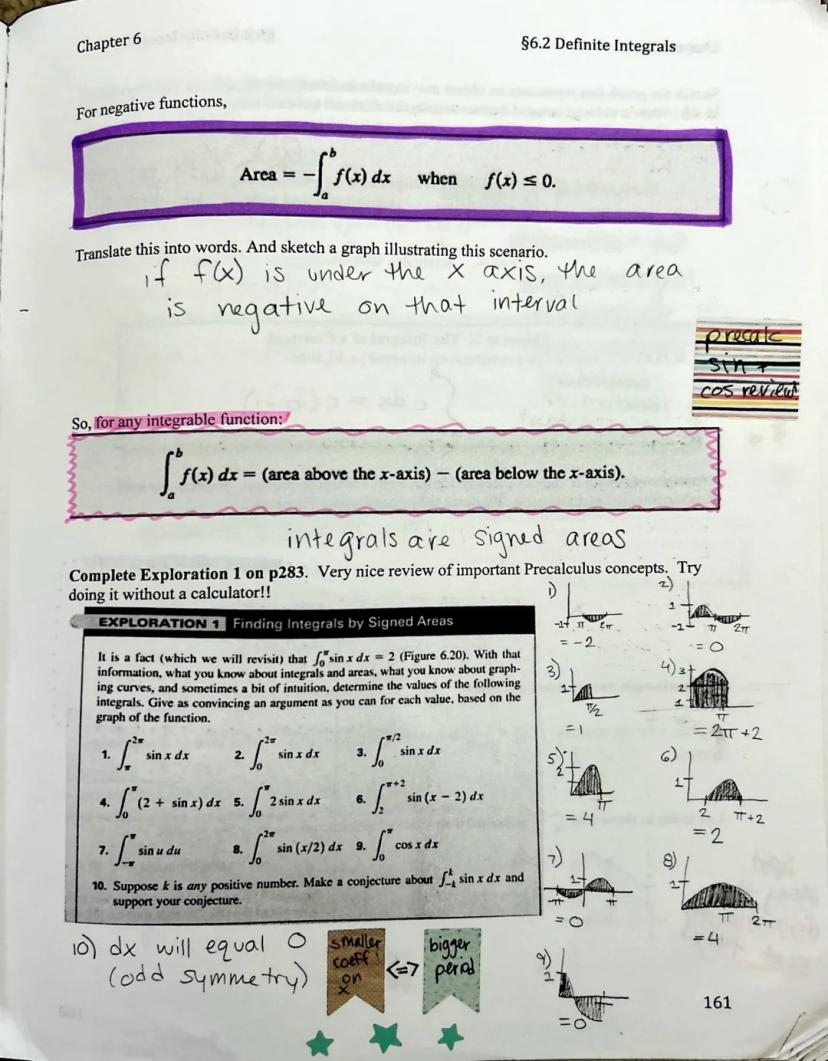 Chapter 6
§6.2 Definite Integrals
For negative functions,
Area = -∫_a^b f(x) dx when f(x) ≤ 0.
Translate this into words. And sketch a graph illustrating this scenario.
if f(x) is under the x axis, the area
is negative on that interval
precalc
sin +
cos review
So, for any integrable function:
∫_a^b f(x) dx = (area above the x-axis) − (area below the x-axis).
integrals are signed areas
Complete Exploration 1 on p283. Very nice review of important Precalculus concepts. Try
doing it without a calculator!!
EXPLORATION 1 Finding Integrals by Signed Areas
It is a fact (which we will revisit) that ∫_0^π sin x dx = 2 (Figure 6.20). With that
information, what you know about integrals and areas, what you know about graph-
ing curves, and sometimes a bit of intuition, determine the values of the following
integrals. Give as convincing an argument as you can for each value, based on the
graph of the function.
1. ∫_π^2π sin x dx 2. ∫_0^2π sin x dx 3. ∫_0^π/2 sin x dx
4. ∫_0^π (2 + sin x) dx 5. ∫_0^π 2 sin x dx 6. ∫_2^π+2 sin (x − 2) dx
7. ∫_-π^π sin u du 8. ∫_0^2π sin (x/2) dx 9. ∫_0^π cos x dx
10. Suppose k is any positive number. Make a conjecture about ∫_-k^k sin x dx and
support your conjecture.
1) -1 π 2π
= -2
2) 1 -1 π 2π
= 0
3) 1 π/2
= 1
4) 3 2 1 π
= 2π+2
5) 2 π
= 4
6) 1 2 π+2
= 2
7) 1 -π π
= 0
8) 1 π 2π
= 4
9) 1
= 0
10) dx will equal 0
(odd symmetry)
smaller
coeff
on
x
<=>
bigger
period
161